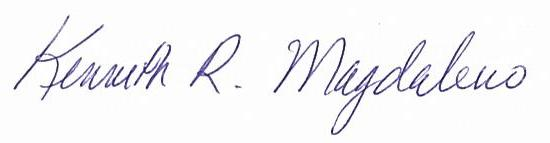 Kenneth R. Magdaleno